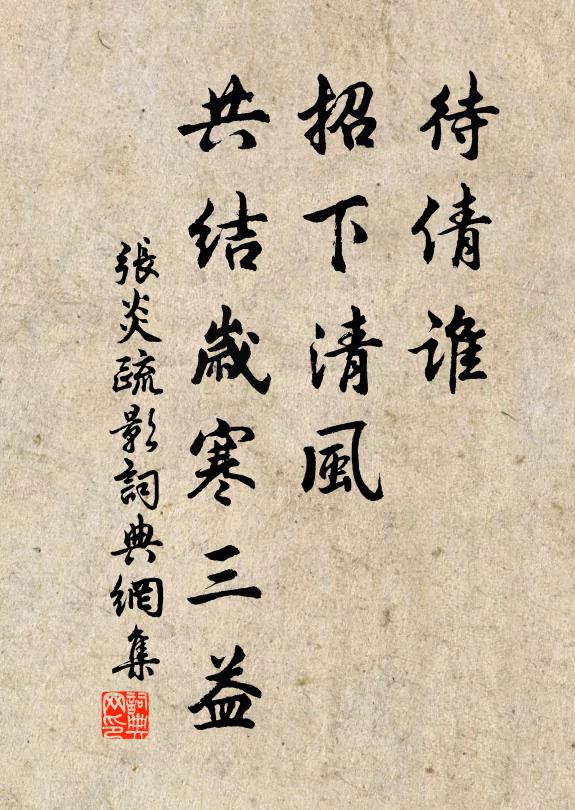 待倩誰
招下清風
共結歲寒三益
張炎疏影詞典網集
詞典網印